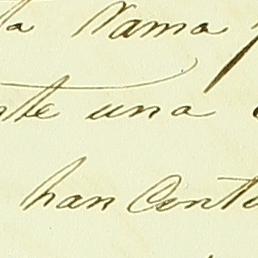 la Rama
nte una
han Conte